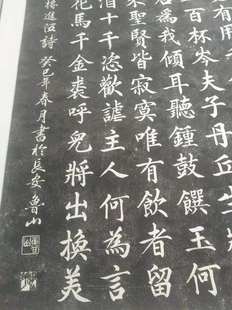 百杯岑夫子丹丘生
君為我傾耳聽鐘鼓饌玉何
來聖賢皆寂寞唯有飲者留
酒十千恣歡謔主人何為言
花馬千金裘呼兒將出換美
將進酒詩 癸巳年春月書於長安魯山